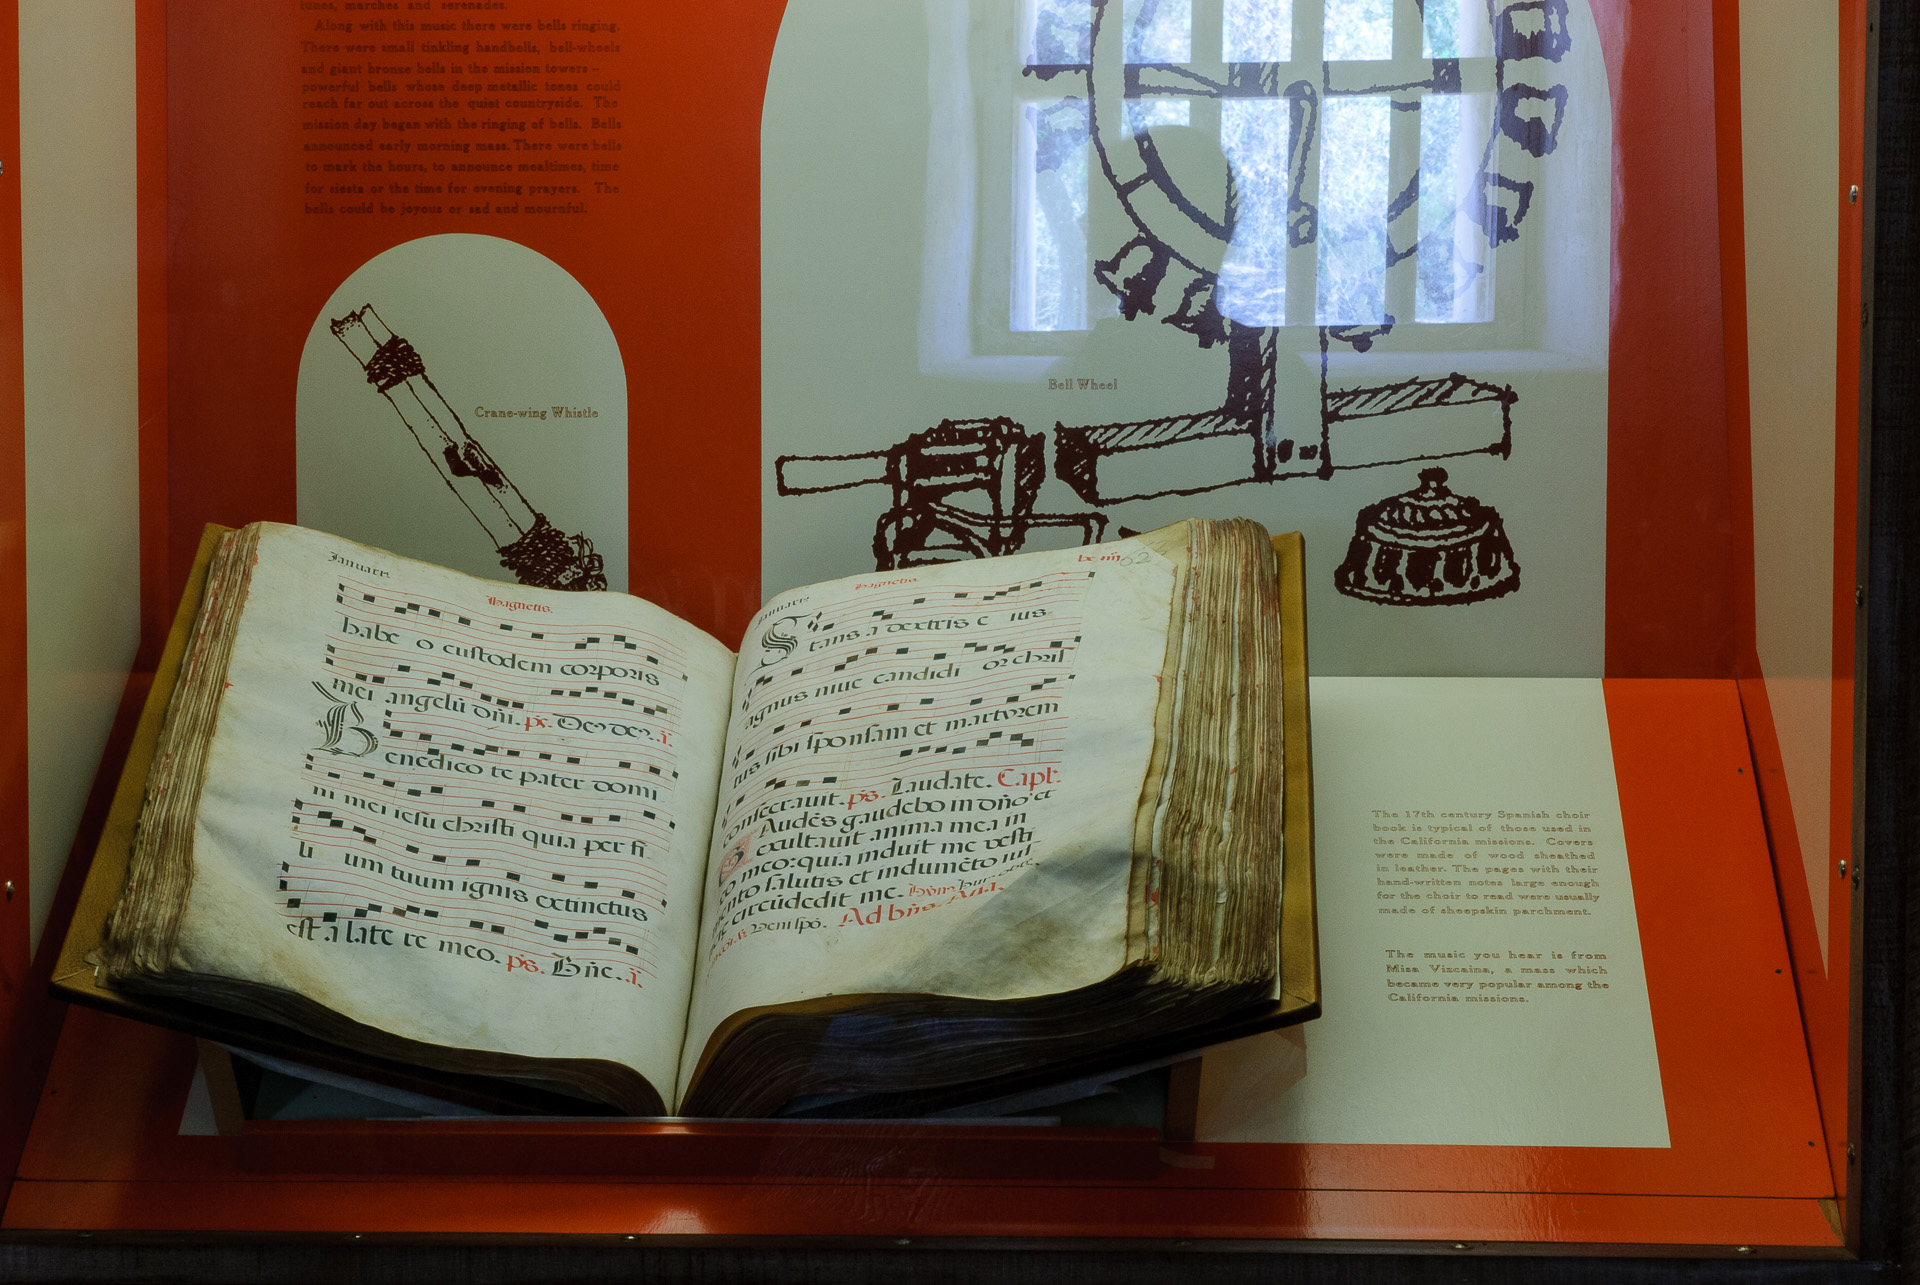 tunes, marches and serenades.
Along with this music there were bells ringing.
There were small tinkling handbells, bell-wheels
and giant bronze bells in the mission towers –
powerful bells whose deep metallic tones could
reach far out across the quiet countryside. The
mission day began with the ringing of bells. Bells
announced early morning mass. There were bells
to mark the hours, to announce mealtimes, time
for siesta or the time for evening prayers. The
bells could be joyous or sad and mournful.
Crane-wing Whistle
Bell Wheel
Januarii
Hagnetis.
habe o custodem corporis
mei angelū dn̄i. ps. Deo
Benedico te pater domi
ni mei iesu christi quia per fi
li um tuum ignis extinctus
est a late re meo. ps. Bn̄e.
Januarii
Hagnetis.
62
Stans a dextris e ius
agnus niue candidi or christ
tus sibi sponsam et martyrem
consecrauit. ps. Laudate. Capl.
Audēs gaudebo in dn̄o et
exultauit anima mea in
o meo: quia induit me vesti
ento salutis et indumēto ius
e circūdedit me.
Ad bn̄s.
The 17th century Spanish choir
book is typical of those used in
the California missions. Covers
were made of wood sheathed
in leather. The pages with their
hand-written notes large enough
for the choir to read were usually
made of sheepskin parchment.
The music you hear is from
Misa Vizcaina, a mass which
became very popular among the
California missions.